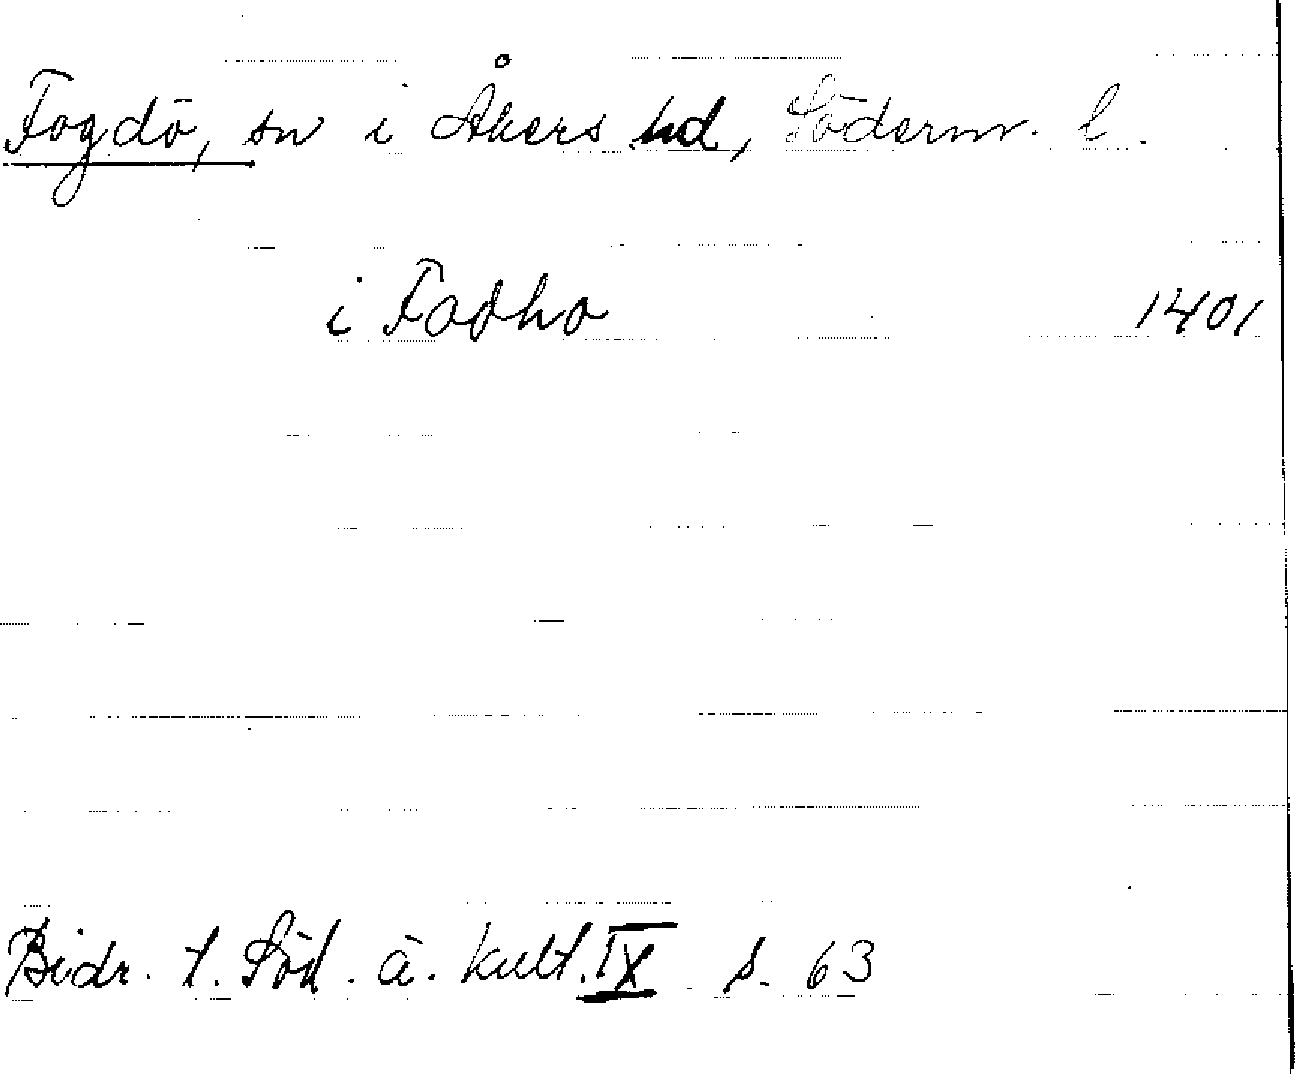 Fogdö, sn i Åkers hd, Söderm. l.
i Fodho 1401
Bidr. t. Söd. ä. kult. IX s. 63